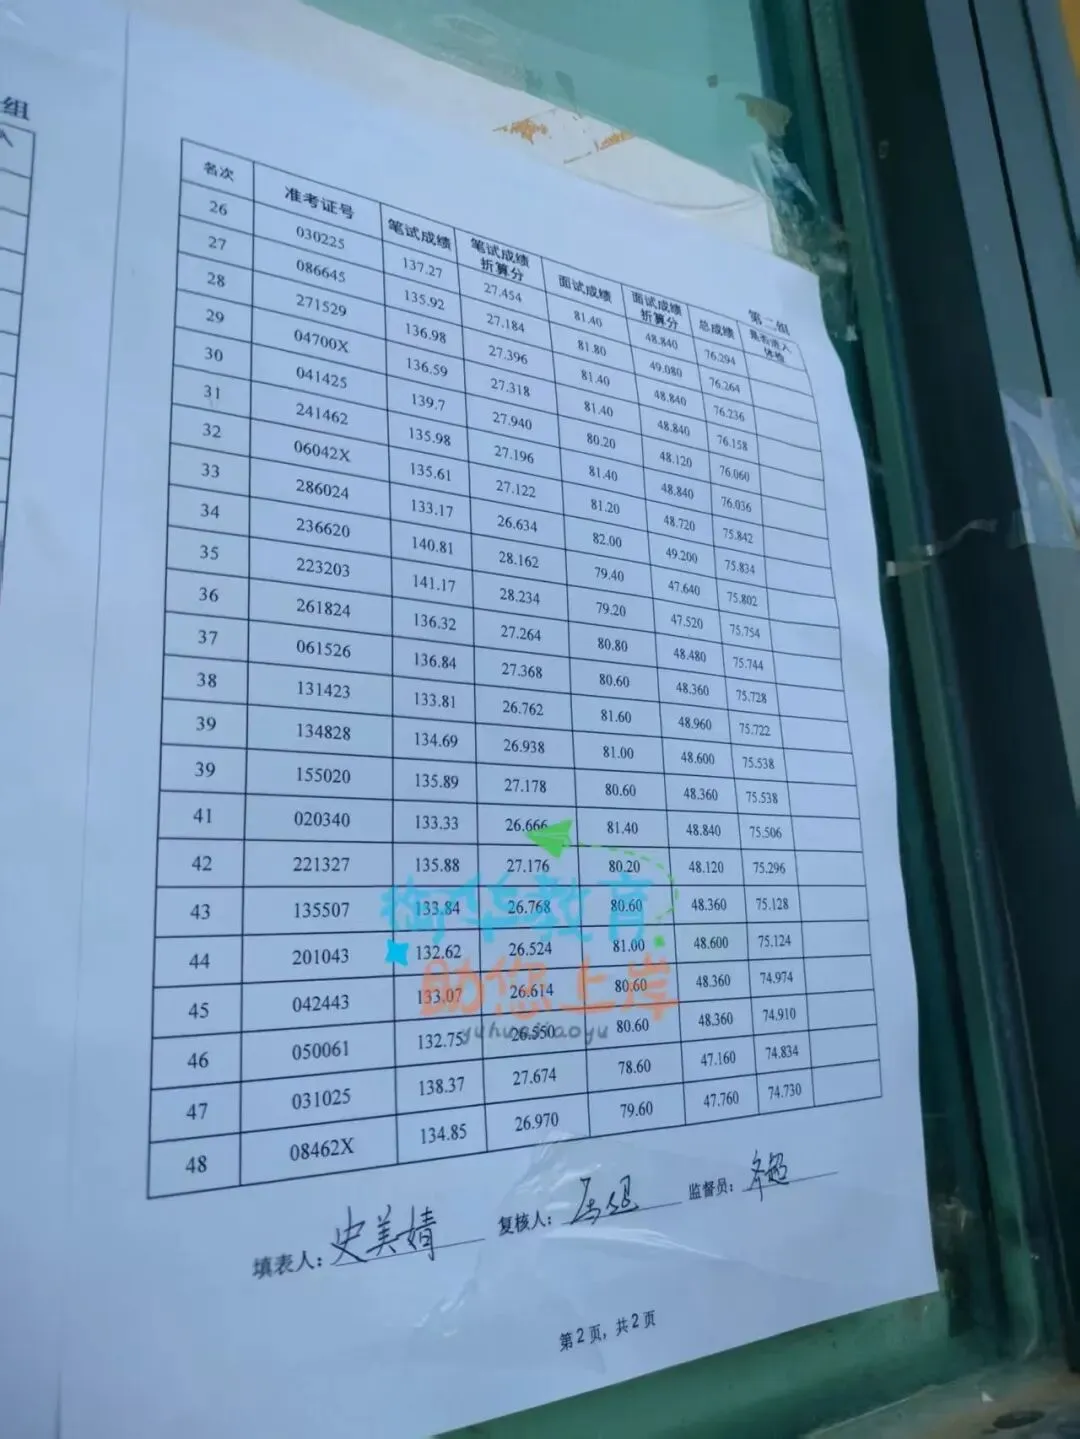 组
第二组
名次 准考证号 笔试成绩 笔试成绩折算分 面试成绩 面试成绩折算分 总成绩 是否进入体检
26 030225 137.27 27.454 81.40 48.840 76.294
27 086645 135.92 27.184 81.80 49.080 76.264
28 271529 136.98 27.396 81.40 48.840 76.236
29 04700X 136.59 27.318 81.40 48.840 76.158
30 041425 139.7 27.940 80.20 48.120 76.060
31 241462 135.98 27.196 81.40 48.840 76.036
32 06042X 135.61 27.122 81.20 48.720 75.842
33 286024 133.17 26.634 82.00 49.200 75.834
34 236620 140.81 28.162 79.40 47.640 75.802
35 223203 141.17 28.234 79.20 47.520 75.754
36 261824 136.32 27.264 80.80 48.480 75.744
37 061526 136.84 27.368 80.60 48.360 75.728
38 131423 133.81 26.762 81.60 48.960 75.722
39 134828 134.69 26.938 81.00 48.600 75.538
39 155020 135.89 27.178 80.60 48.360 75.538
41 020340 133.33 26.666 81.40 48.840 75.506
42 221327 135.88 27.176 80.20 48.120 75.296
43 135507 133.84 26.768 80.60 48.360 75.128
44 201043 132.62 26.524 81.00 48.600 75.124
45 042443 133.07 26.614 80.60 48.360 74.974
46 050061 132.75 26.550 80.60 48.360 74.910
47 031025 138.37 27.674 78.60 47.160 74.834
48 08462X 134.85 26.970 79.60 47.760 74.730
华教育
助您上岸
填表人：史美婧 复核人： 监督员：
第2页，共2页